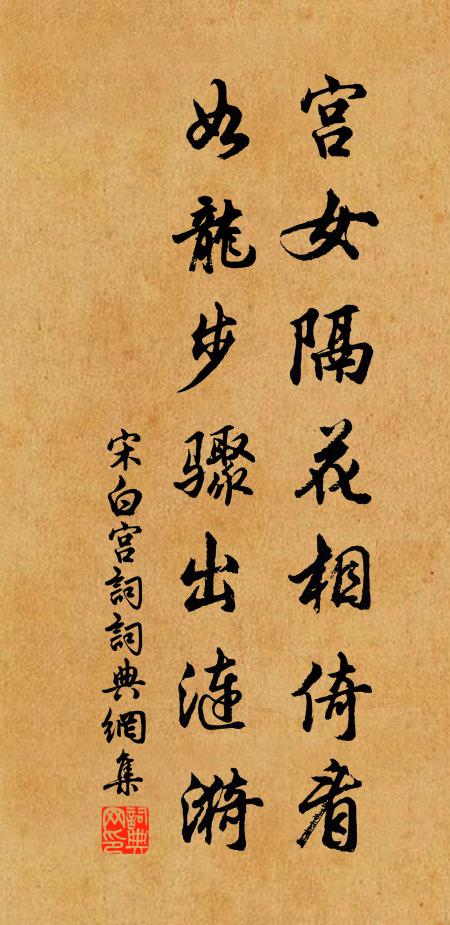 宮女隔花相倚看
如龍步驟出漣漪
宋白宮詞詞典網集
詞典網印